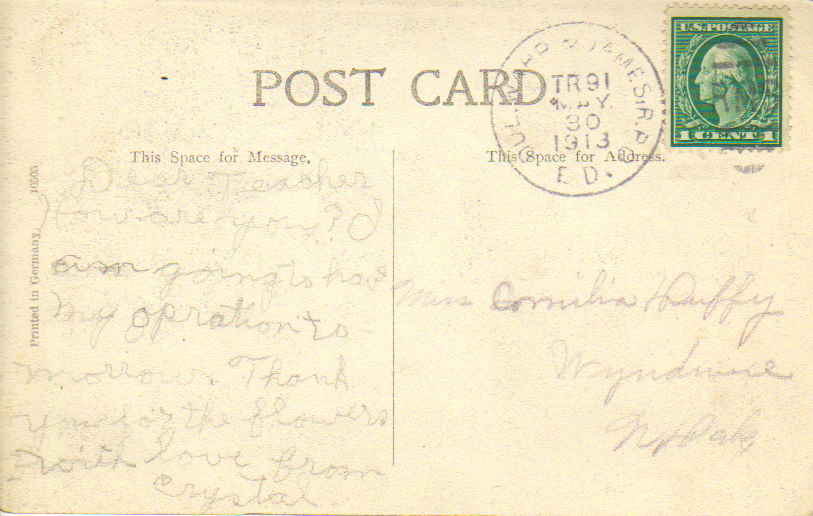 POST CARD
This Space for Message.
This Space for Address.
Printed in Germany.
10505
U.S. POSTAGE
1 CENT 1
& JAMES. R.P.O.
TR 91
MAY
30
1913
E. D.
Dear Teacher
How are you? I
am going to have
My opration to-
morrow. Thank
you for the flowers
with love from
Crystal
Miss Cornilia Duffy
Wyndmere
N. Dak